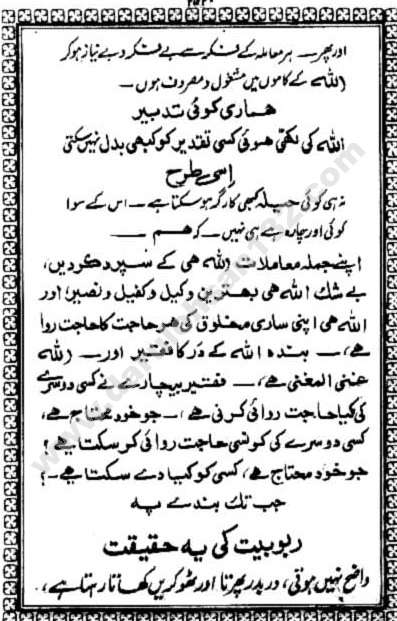 اور پھر — ہر معاملہ کے فکر سے بے فکر و بے نیاز ہو کر
اللہ کے کاموں میں مشغول و مصروف ہوں —
ھماری کوئی تدبیر
اللہ کی لکھی ھوئی کسی تقدیر کو کبھی بدل نہیں سکتی
اِسی طرح
نہ ہی کوئی حیلہ کبھی کارگر ہو سکتا ہے — اس کے سوا
کوئی اور چارہ ہے ہی نہیں — کہ ھم —
اپنے جملہ معاملات اللہ ھی کے سپرد کر دیں،
بے شک اللہ ھی بھترین وکیل و کفیل و نصیر؛ اور
اللہ ھی اپنی ساری مخلوق کی ھر حاجت کا حاجت روا
ھے، — بندہ اللہ کے دَر کا فقیر اور — اللہ
غنی المغنی ھے، — فقیر بیچارے نے کسی دوسرے
کی کیا حاجت روائی کرنی ھے، — جو خود محتاج ھے،
کسی دوسرے کی کونسی حاجت روائی کر سکتا ھے؟
جو خود محتاج ھے، کسی کو کیا دے سکتا ھے —؟
جب تک بندے پہ
ربوبیت کی یہ حقیقت
واضح نہیں ہوتی، در بدر پھرتا اور ٹھوکریں کھاتا رہتا ہے،